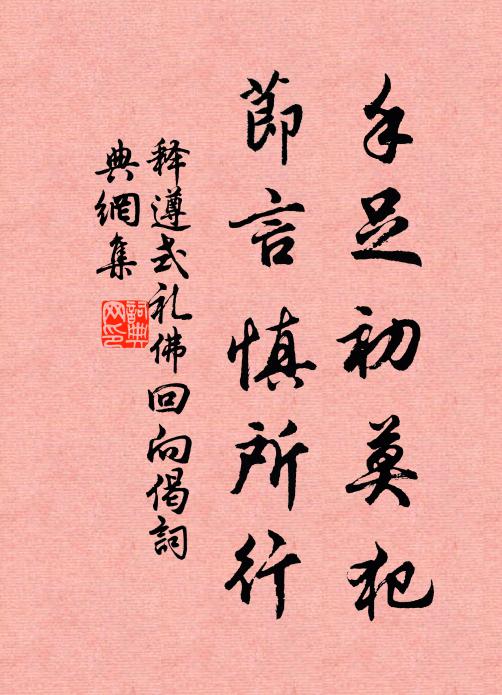 手足初莫犯
節言慎所行
释遵式礼佛回向偈詞
典網集
詞典网印